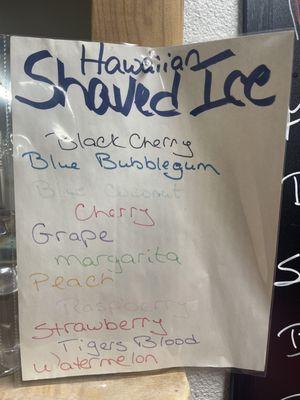 Hawaiian
Shaved Ice
Black Cherry
Blue Bubblegum
Blue Coconut
Cherry
Grape
margarita
Peach
Raspberry
Strawberry
Tigers Blood
Watermelon